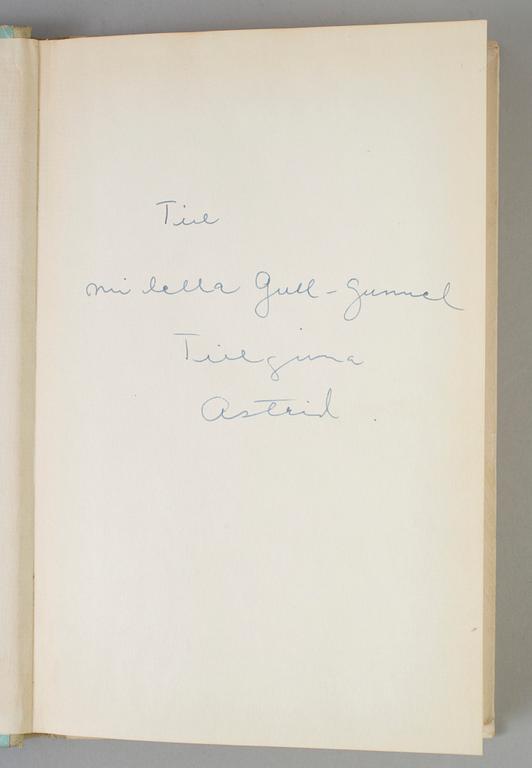 Till
min lilla Gull-Gunnel
Tillgivna
Astrid.